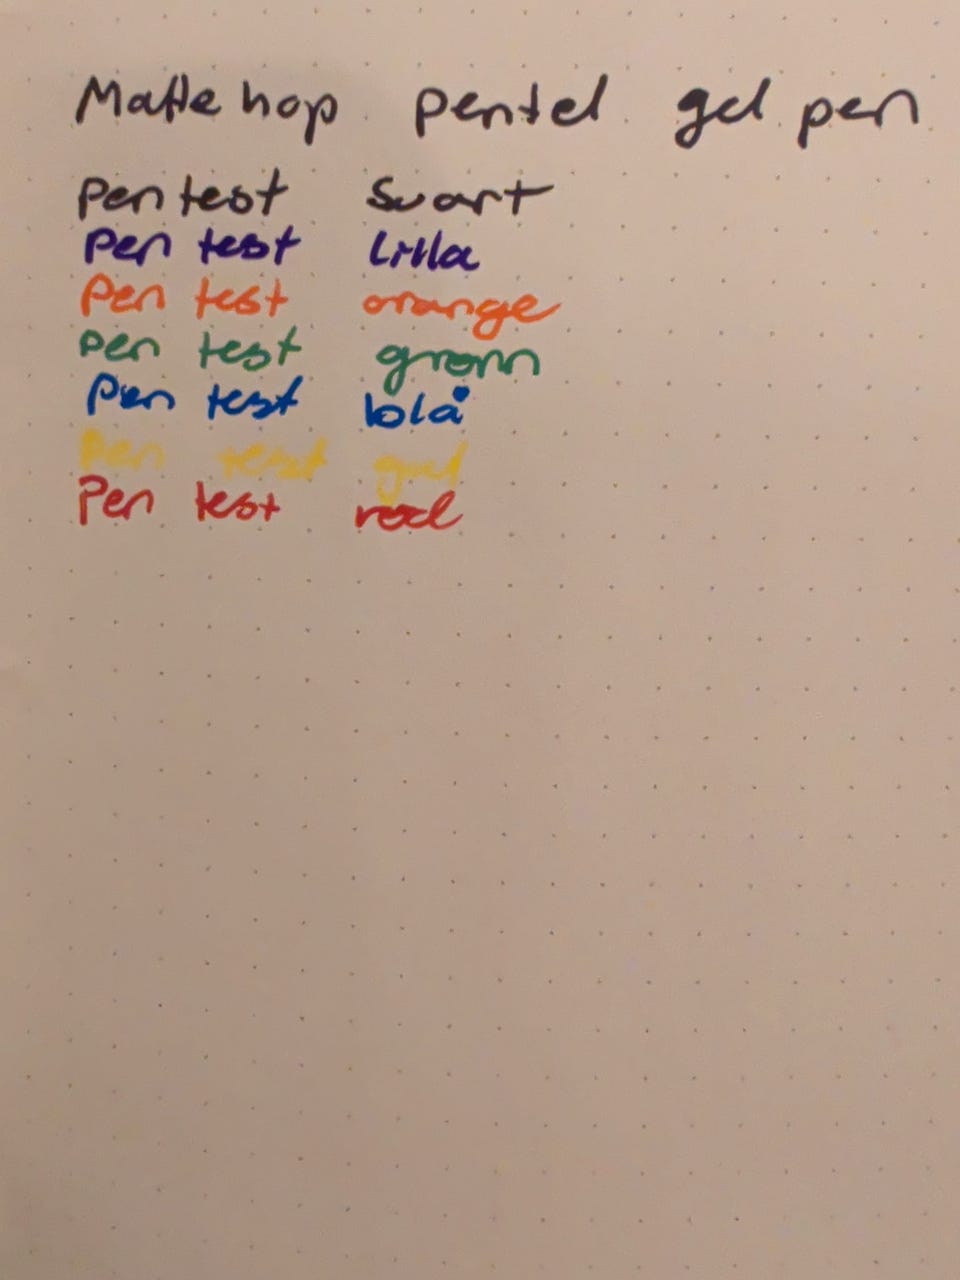 Matte hop pentel gel pen
Pen test Svart
Pen test Lilla
Pen test orange
pen test grønn
Pen test blå
Pen test gul
Pen test rød